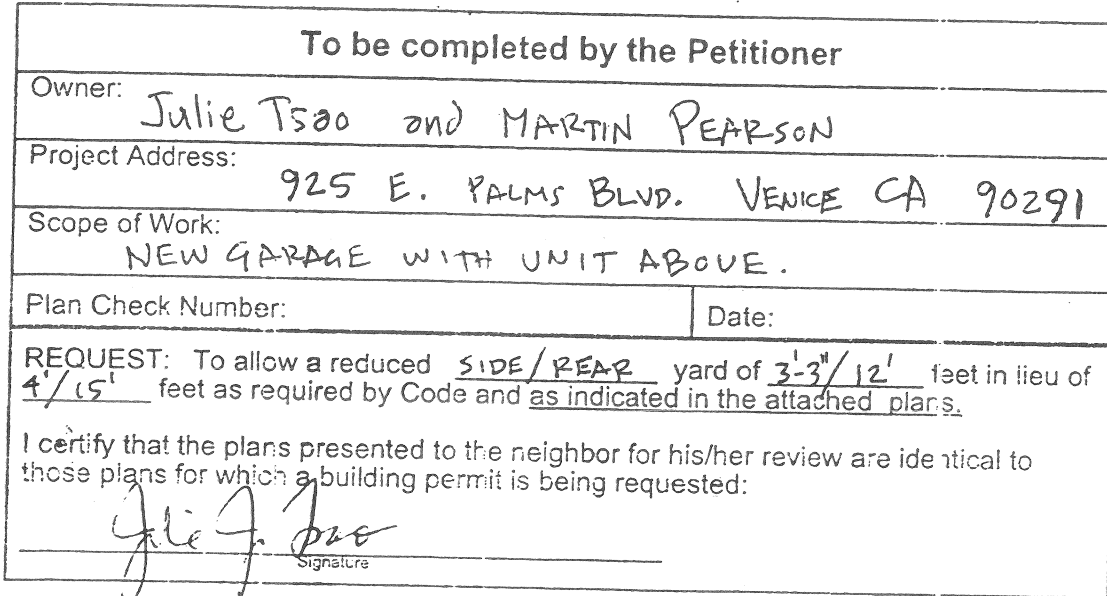 To be completed by the Petitioner
Owner: Julie Tsao and MARTIN PEARSON
Project Address:
925 E. PALMS BLVD. VENICE CA 90291
Scope of Work:
NEW GARAGE WITH UNIT ABOVE.
Plan Check Number: Date:
REQUEST: To allow a reduced SIDE/REAR yard of 3'-3"/12' feet in lieu of
4'/15' feet as required by Code and as indicated in the attached plans.
I certify that the plans presented to the neighbor for his/her review are identical to
those plans for which a building permit is being requested:
Julie J. Tsao
Signature